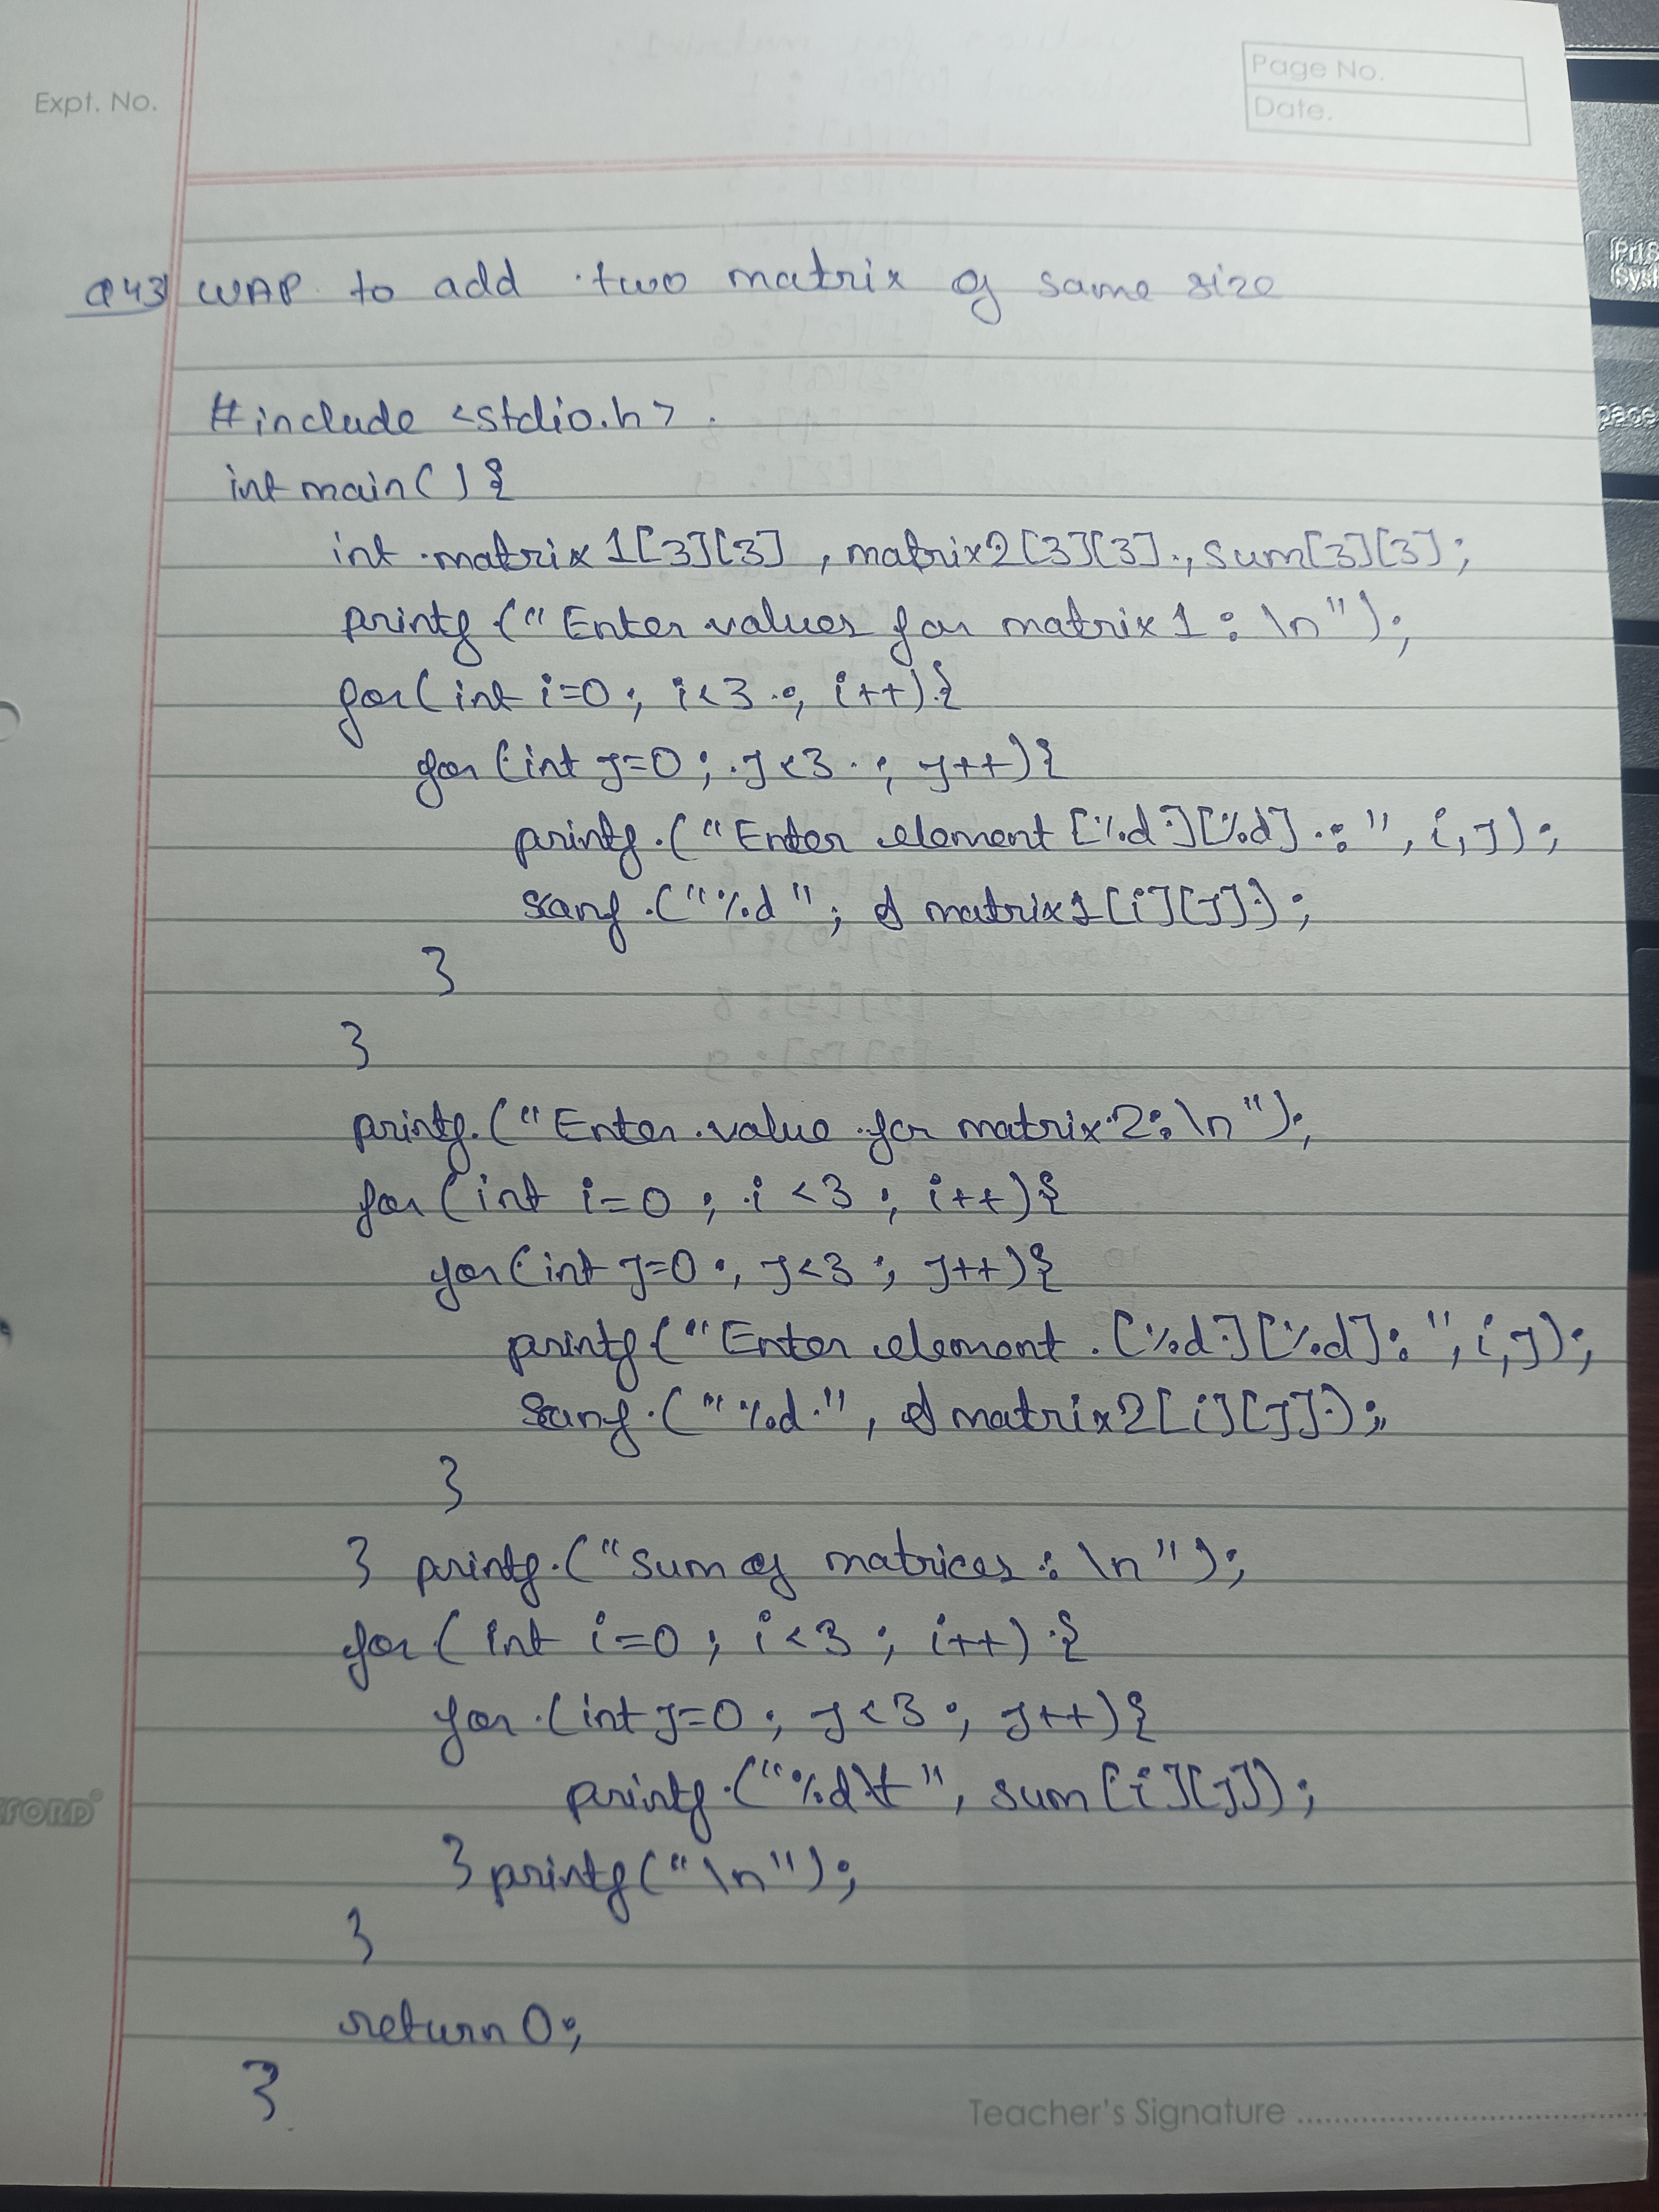 Expt. No.
Page No.
Date.
Q43 WAP to add two matrix of same size
#include <stdio.h>
int main(){
int matrix1[3][3], matrix2[3][3], sum[3][3];
printf("Enter values for matrix1:\n");
for(int i=0; i<3; i++){
for(int j=0; j<3; j++){
printf("Enter element[%d][%d]:", i,j);
scanf("%d"; &matrix1[i][j]);
}
}
printf("Enter value for matrix2:\n");
for(int i=0; i<3; i++){
for(int j=0; j<3; j++){
printf("Enter element [%d][%d]:", i,j);
scanf("%d", &matrix2[i][j]);
}
} printf("Sum of matrices:\n");
for(int i=0; i<3; i++){
for(int j=0; j<3; j++){
printf("%d\t", sum[i][j]);
} printf("\n");
}
return 0;
}
Teacher's Signature